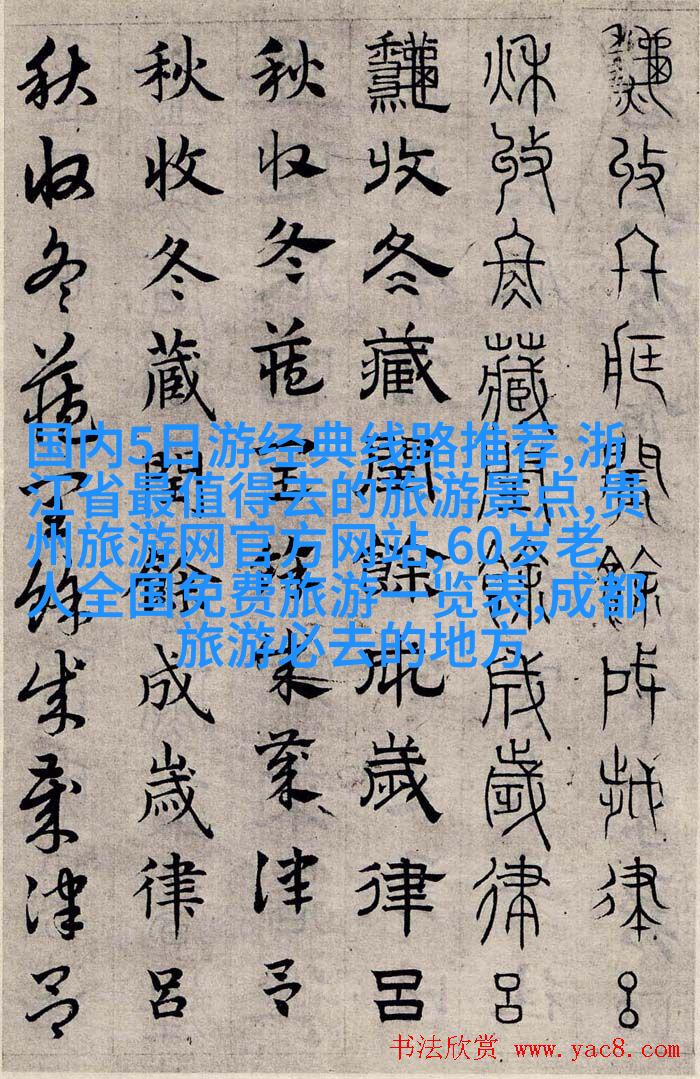 秋收冬藏閏餘成歲律呂
秋收冬藏閏餘成歲律呂
秋收冬藏閏餘成歲律呂
秋收冬藏閏餘成歲律呂
秋收冬藏閏餘成歲律呂
秋收冬藏閏餘成歲律呂
国内5日游经典线路推荐,浙
江省最值得去的旅游景点,贵
州旅游网官方网站,60岁老
人全国免费旅游一览表,成都
旅游必去的地方
书法欣赏 www.yac8.com